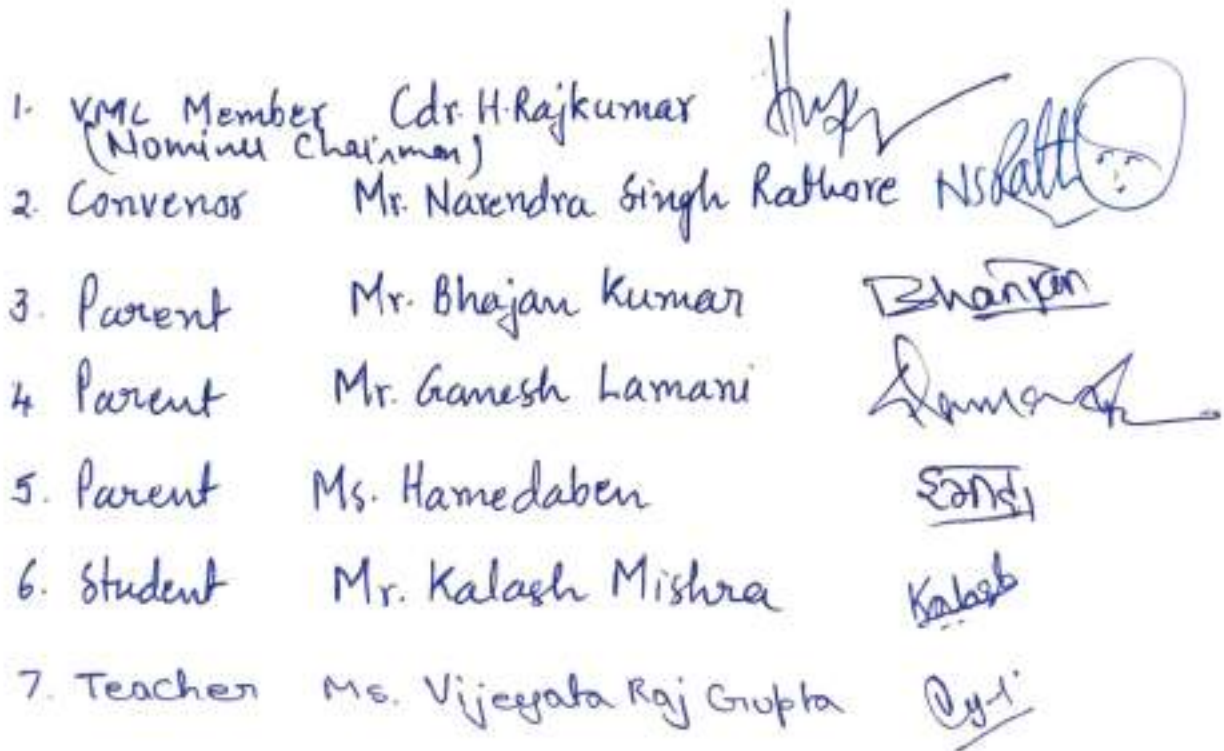 1. VMC Member Cdr. H. Rajkumar
(Nominee Chairman)
2. Convenor Mr. Narendra Singh Rathore
3. Parent Mr. Bhajan Kumar
4 Parent Mr. Ganesh Lamani
5. Parent Ms. Hamedaben
6. Student Mr. Kalash Mishra Kalash
7. Teacher Ms. Vijeyata Raj Gupta